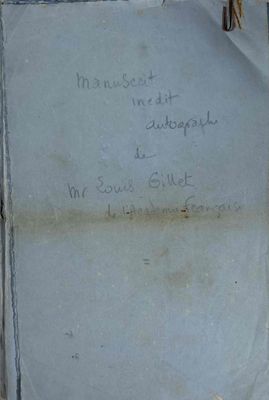 Manuscrit
inédit
autographe
de
Mr Louis Gillet
de l'Académie Française
=